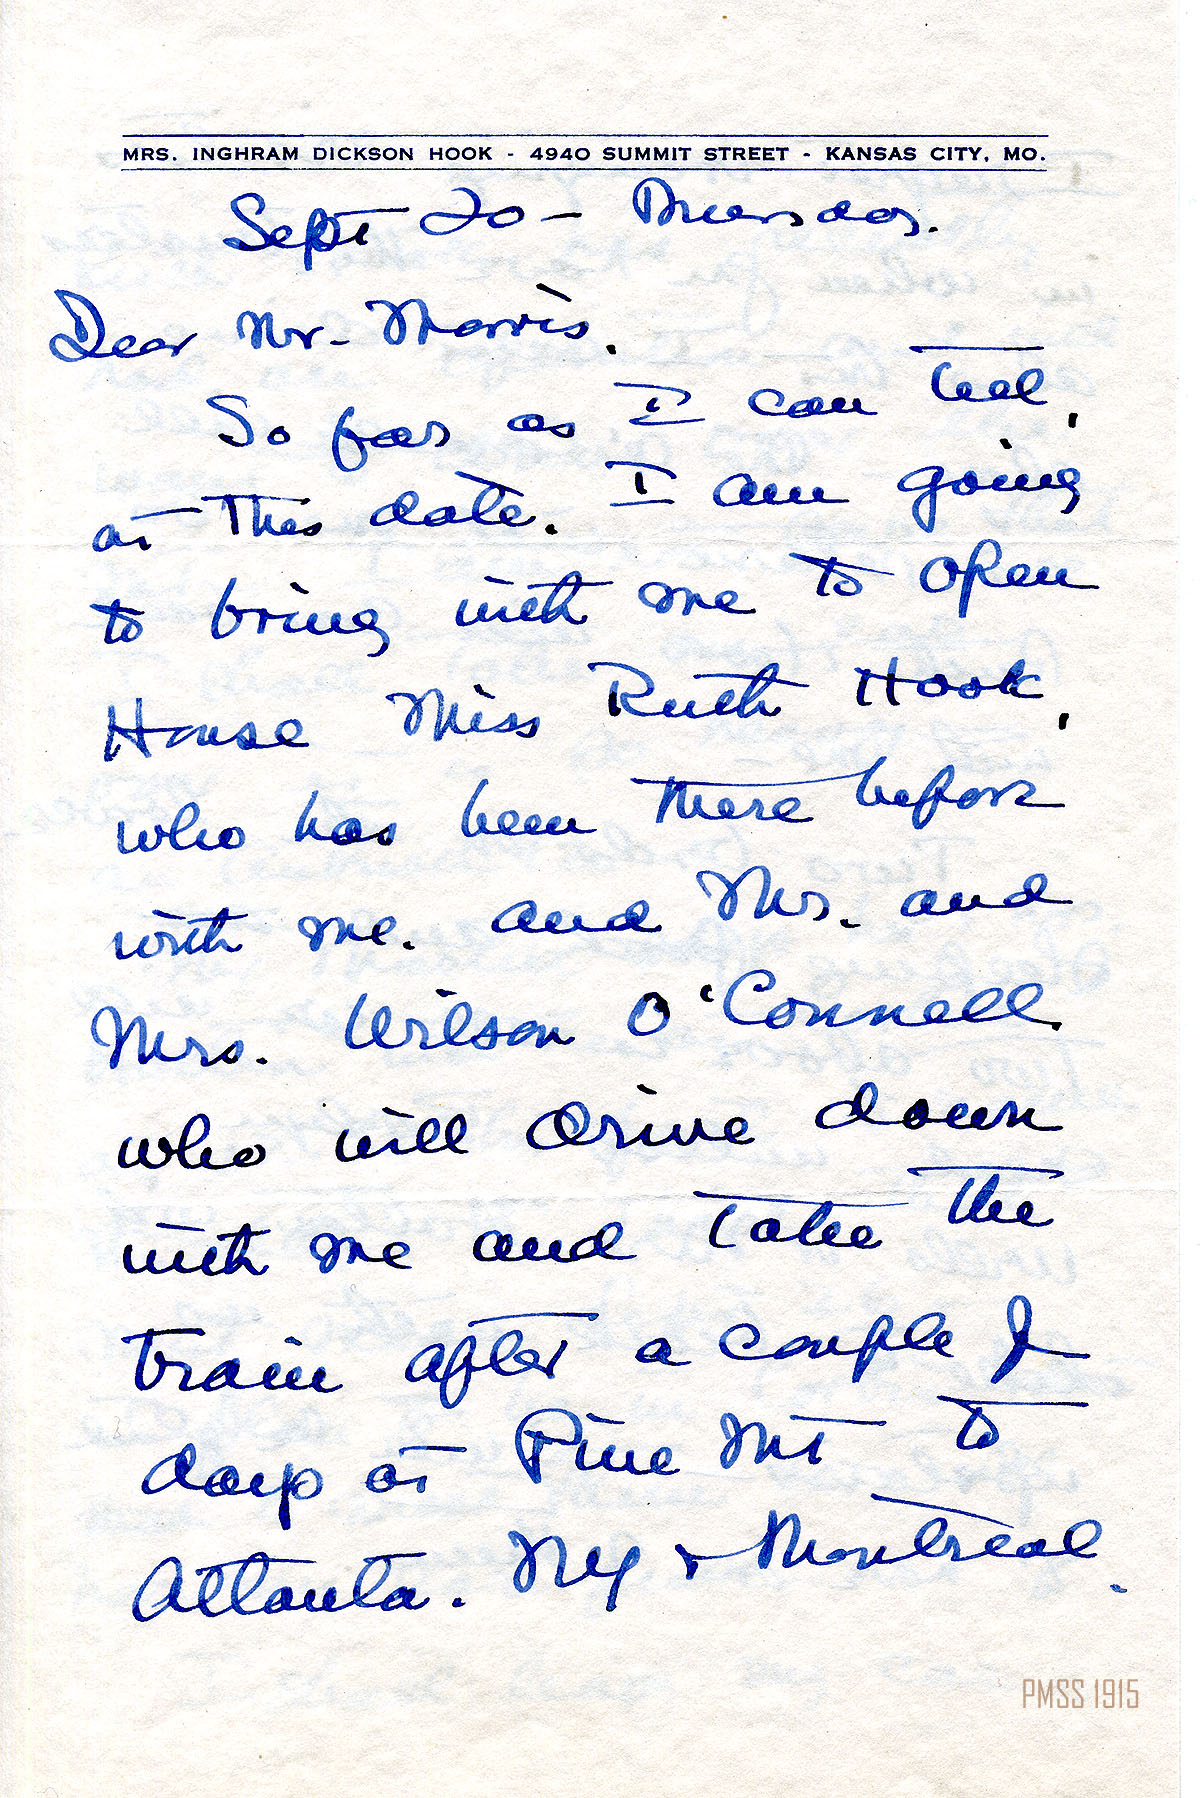 MRS. INGHRAM DICKSON HOOK - 4940 SUMMIT STREET - KANSAS CITY, MO.
Sept 20 - Thursday.
Dear Mr. Morris.
So far as I can tell,
at this date. I am going
to bring with me to open
House Miss Ruth Hook,
who has been there before
with me. and Mr. and
Mrs. Wilson O'Connell.
who will drive down
with me and take the
train after a couple of
days at Pine Mt to
Atlanta. NY & Montreal.
PMSS 1915